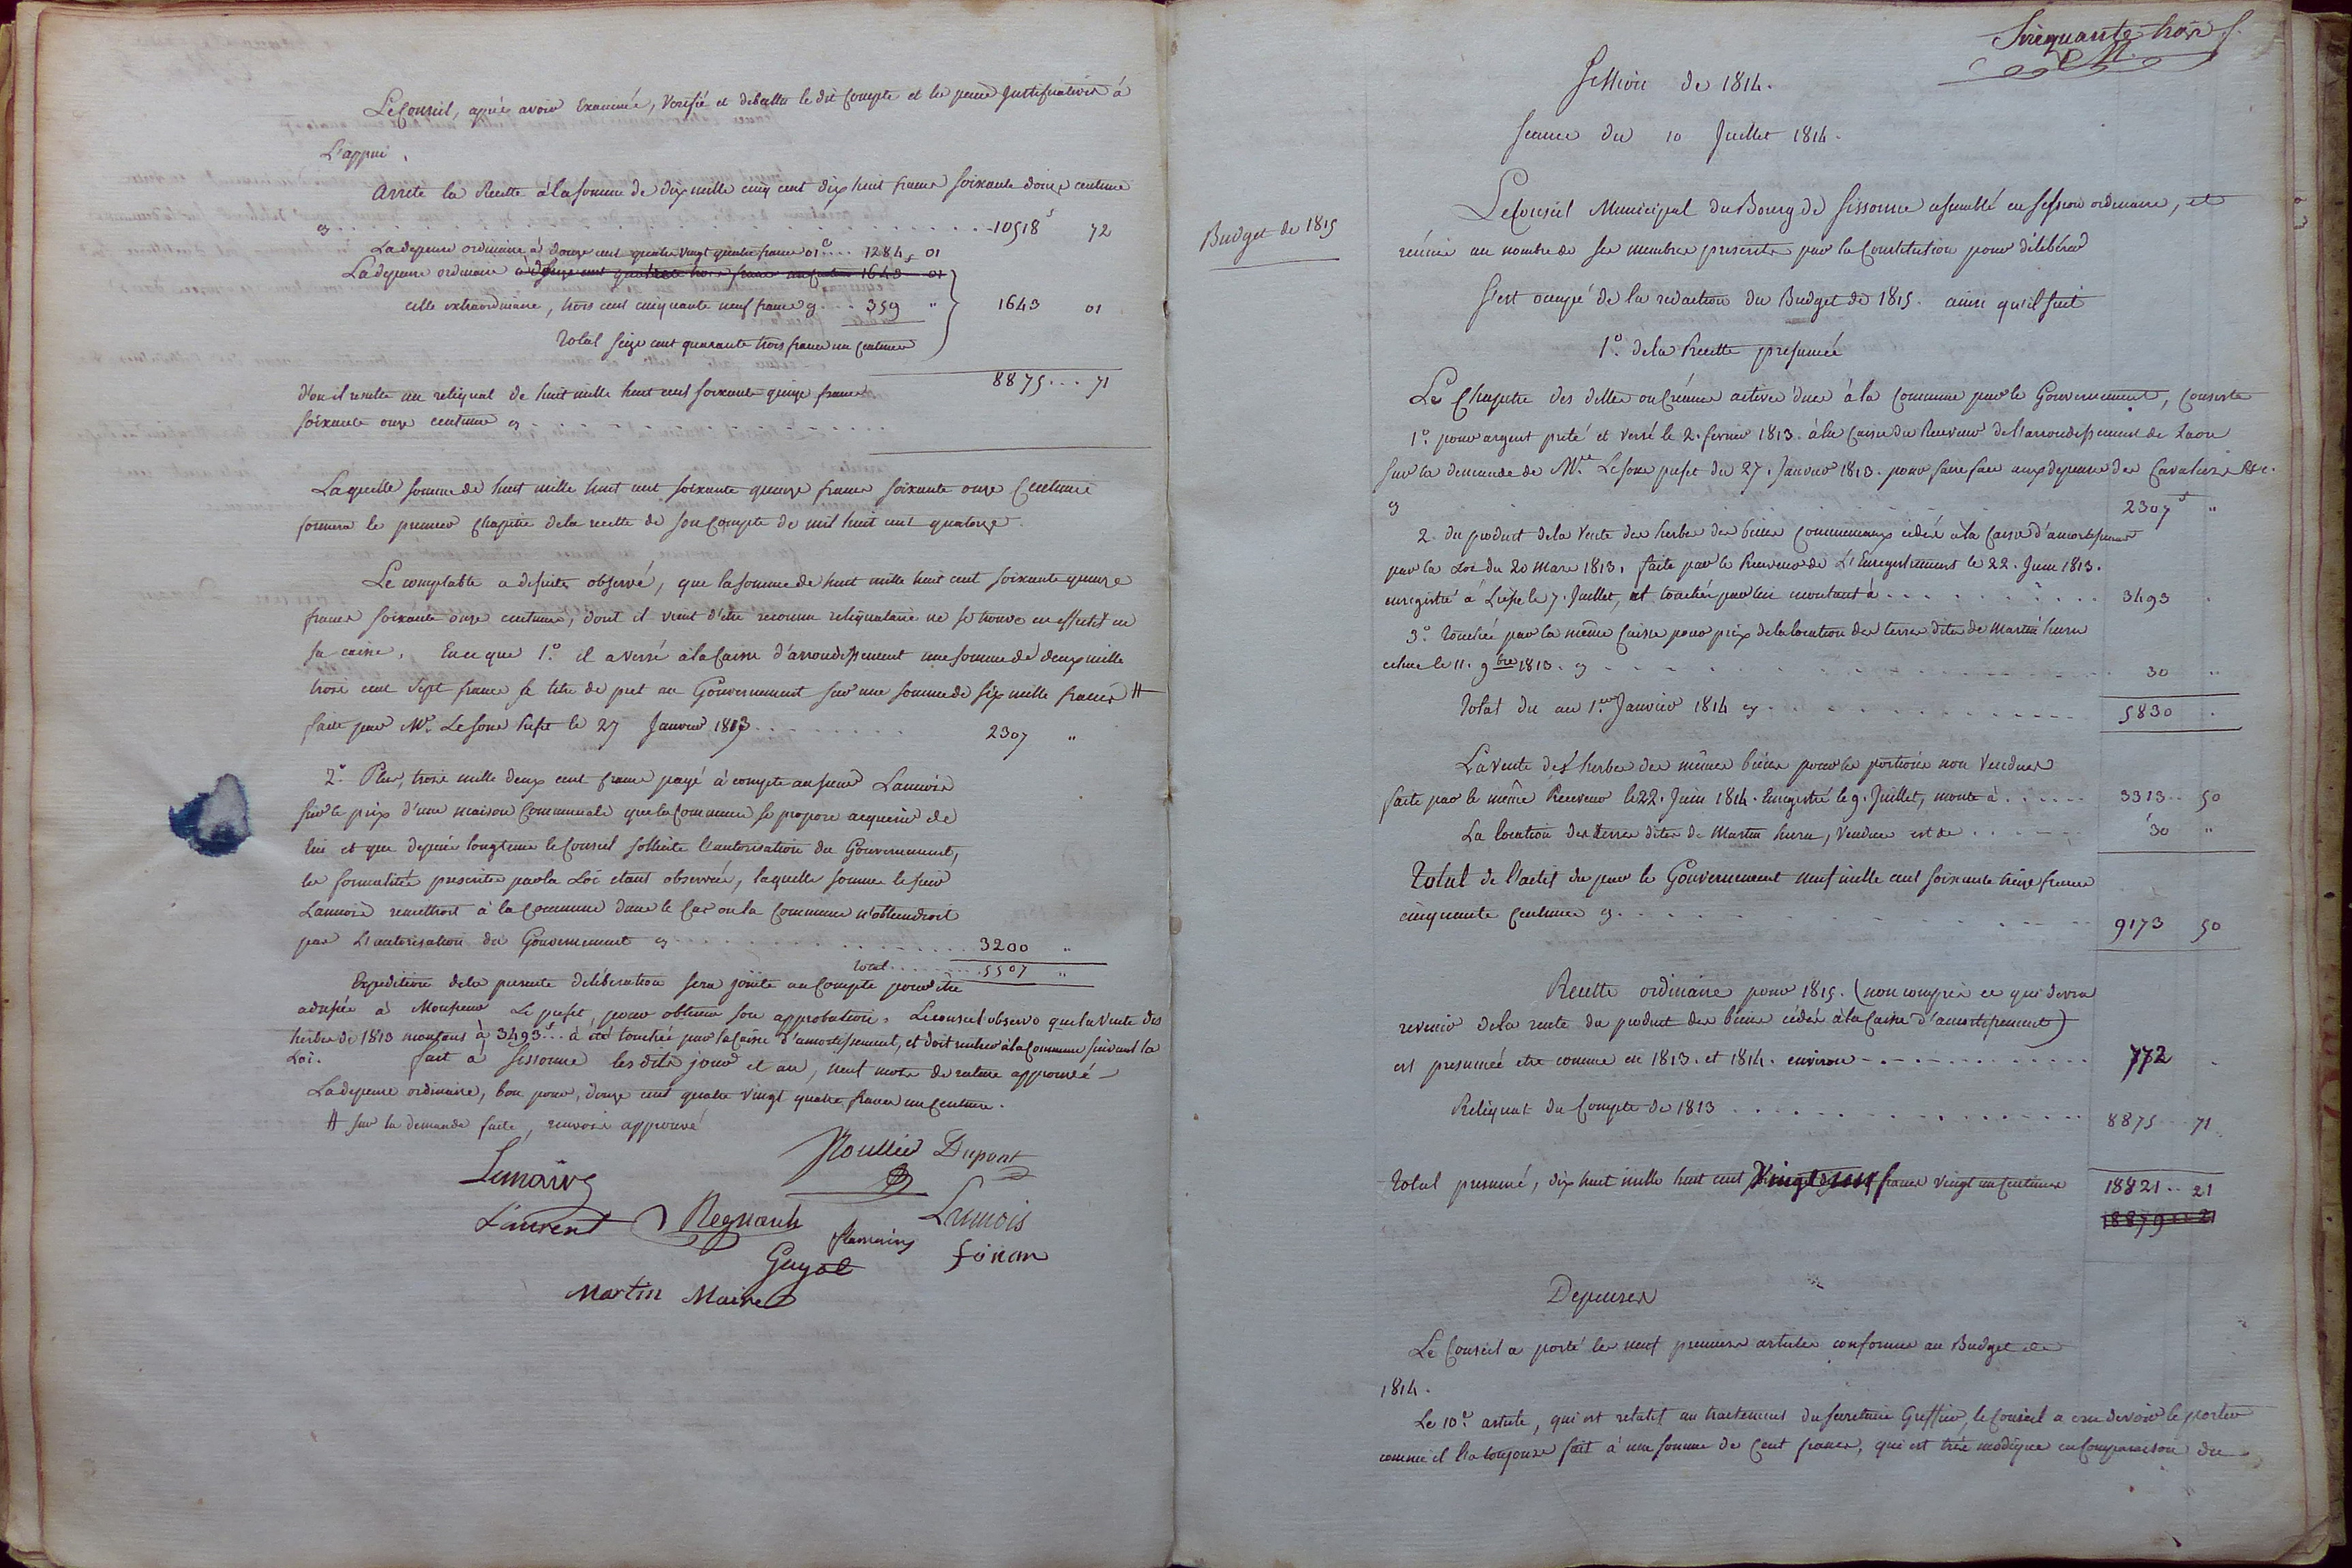 Le Conseil, après avoir Examiné, Verifié et debattu le dit Compte et les pieces Justificatives à
L'appui,
arrete la Recette à la somme de dix mille cinq cent dix huit francs soixante douze centimes
cy 10518 f 72
La depense ordinaire à douze cent quatre vingt quatre francs 01 c 1284, 01
La depense ordinaire à 1643 01
celle extraordinaire, trois cent cinquante neuf francs cy 359 " 1643 01
Total seize cent quarante trois francs un centime
d'ou il resulte un reliquat de huit mille huit cent soixante quinze francs 8875 71
soixante onze centimes cy
Laquelle somme de huit mille huit cent soixante quinze francs soixante onze Centimes
formera le premier chapitre de la recette de son Compte de mil huit cent quatorze.
Le comptable a desuite observé, que la somme de huit mille huit cent soixante quinze
francs soixante onze centimes, dont il vient d'etre reconnu reliquataire ne se trouve en effectif en
sa caisse. En ce que 1.º il a versé à la Caisse d'arrondissement une somme de deux mille
trois cent sept francs à titre de pret au Gouvernement sur une somme de six mille francs #
faite par Mr. Lesous Prefet le 27 Janvier 1813 2307 "
2.º Plus, trois mille deux cent francs payé à compte au sieur Lannois
sur le prix d'une maison Communale que la Commune se propose acquerir de
lui et que depuis longtems le Conseil sollicite l'autorisation du Gouvernement,
les formalités prescrites par la Loi etant observées, laquelle somme le sieur
Lannois remettroit à la Commune dans le Cas ou la Commune n'obtiendroit
pas L'autorisation du Gouvernement cy 3200 "
Total 5507 "
Expedition de la presente deliberation sera jointe au Compte pour etre
adressée à Monsieur Le prefet, pour obtenir son approbation. Le conseil observe que la Vente des
herbes de 1813 montant à 3493 f à été touchée par la Caisse d'amortissement, et doit rentrer à la Commune suivant la
Loi. fait à Sissonne les dits jour et an, neuf mots de rature approuvé
La depense ordinaire, bon pour, douze cent quatre vingt quatre francs un Centime.
# sur la demande faite, renvoi approuvé
Lemaire Roullier Dupont
Laurent Regnault Lannois
Flamains
Guyot
Martin Maire
Sinquante trois f.
Session de 1814.
Seance du 10 Juillet 1814.
Budget de 1815
Le Conseil Municipal du Bourg de Sissonne assemblé en session ordinaire, et
réunie au nombre de ses membres prescrits par la Constitution pour délibérer
S'est occupé de la redaction du Budget de 1815. ainsi qu'il suit
1.º de la Recette presumée
Le Chapitre des dettes ou Créances actives dues à la Commune par le Gouvernement, Consiste
1.º pour argent preté et versé le 2. fevrier 1813. à la Caisse du Receveur de l'arrondissement de Laon
sur la demande de Mr. Lesous prefet du 27. Janvier 1813. pour faire face aux depenses des Cavaliers &c.
cy 2307 f "
2. du produit de la Vente des herbes des biens Communaux cédés à la Caisse d'amortissement
par la Loi du 20 Mars 1813, faite par le Receveur de L'Enregistrement le 22. Juin 1813.
enregistré à Liesse le 7. Juillet, et touchée par lui montant à 3493 .
3.º Touchée par la même Caisse pour prix de la location des terres dites de Martin huru
echue le 11. 9bre 1813. cy 30 "
Total du au 1.er Janvier 1814 cy 5830 .
La vente des herbes des mêmes biens pour les portions non Vendues
faite par le même Receveur le 22. Juin 1814. Enregistré le 9. Juillet, monte à 3313 50
La location des terres dites de Martin huru, Vendues est de 30 "
Total de l'actif du par le Gouvernement neuf mille cent soixante treize francs
cinquante Centimes cy 9173 50
Recette ordinaire pour 1815. (non compris ce qui devra
revenir de la rente du produit des biens cédés à la Caisse d'amortissement)
est presumée etre comme en 1813. et 1814. environ 772 .
Reliquat du Compte de 1813 8875 71
Total presumé, dix huit mille huit cent Vingt un francs vingt un Centimes 18821 21
18879 21
Depenses
Le Conseil a porté les neuf premiers articles conformes au Budget de
1814.
Le 10.e article, qui est relatif au traitement du secretaire Greffier, le Conseil a cru devoir le porter
comme il l'a toujours fait à une somme de Cent francs, qui est très modique en Comparaison du